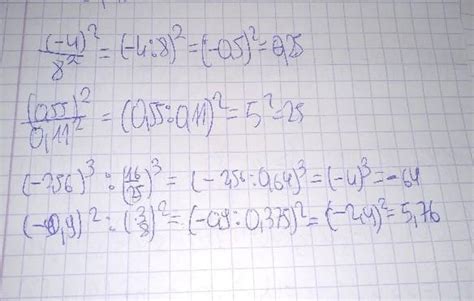 (-4)²/8² = (-4:8)² = (-0,5)² = 0,25
(0,55)²/0,11² = (0,55:0,11)² = 5² = 25
(-2,56)³ : (16/25)³ = (-2,56:0,64)³ = (-4)³ = -64
(-0,9)² : (3/8)² = (-0,9:0,375)² = (-2,4)² = 5,76